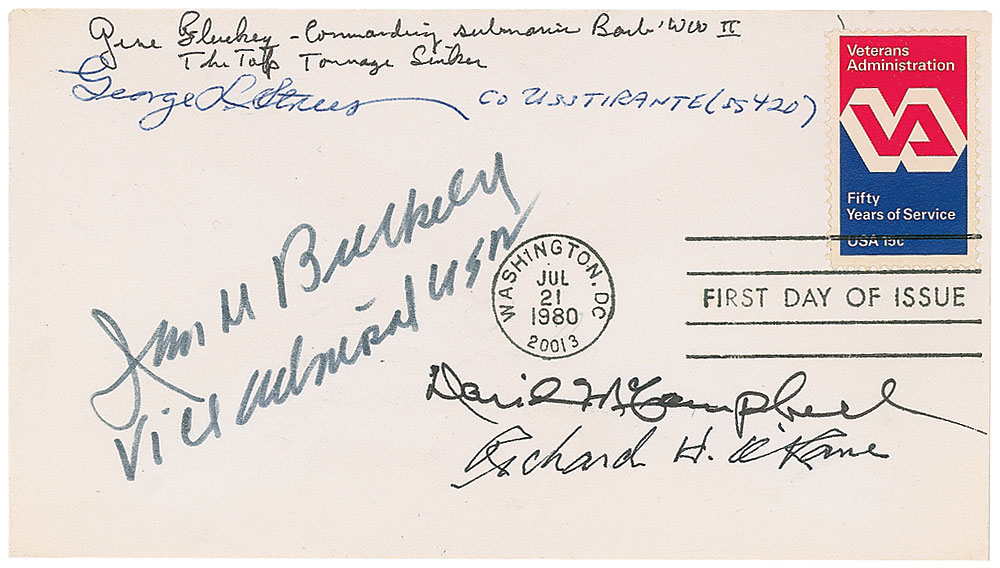 Gene Fluckey - Commanding submarine Barb WW II
The Top Tonnage Sinker
George L Street CO USS TIRANTE (SS 420)
Veterans
Administration
VA
Fifty
Years of Service
USA 15c
John D Bulkeley
Vice Admiral USN
WASHINGTON, DC
JUL
21
1980
20013
FIRST DAY OF ISSUE
David McCampbell
Richard H. O'Kane